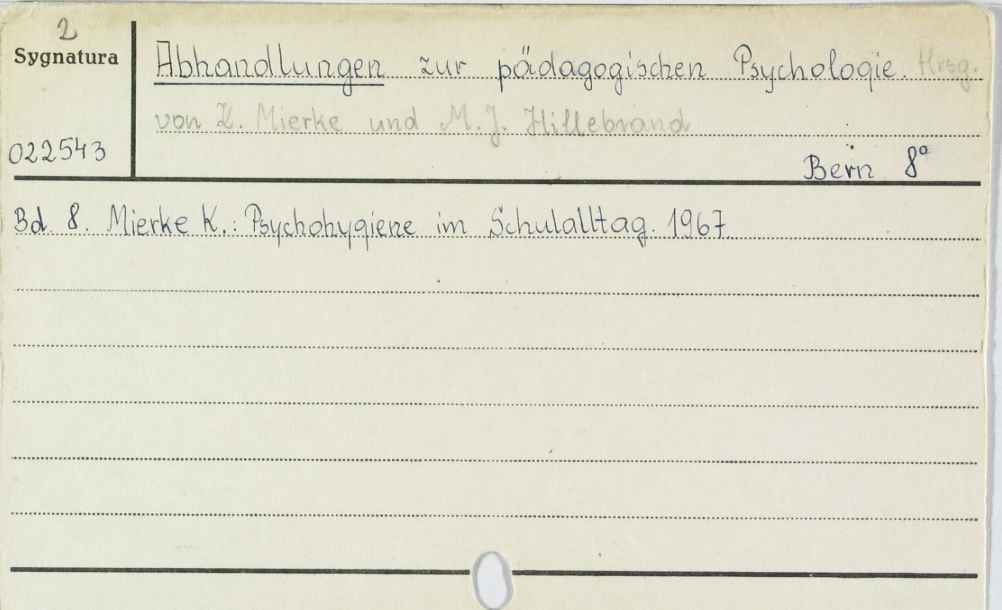 2
Sygnatura
Abhandlungen zur pädagogischen Psychologie. Hrsg.
von K. Mierke und M. J. Hillebrand
022543
Bern 8°
Bd. 8. Mierke K.: Psychohygiene im Schulalltag. 1967